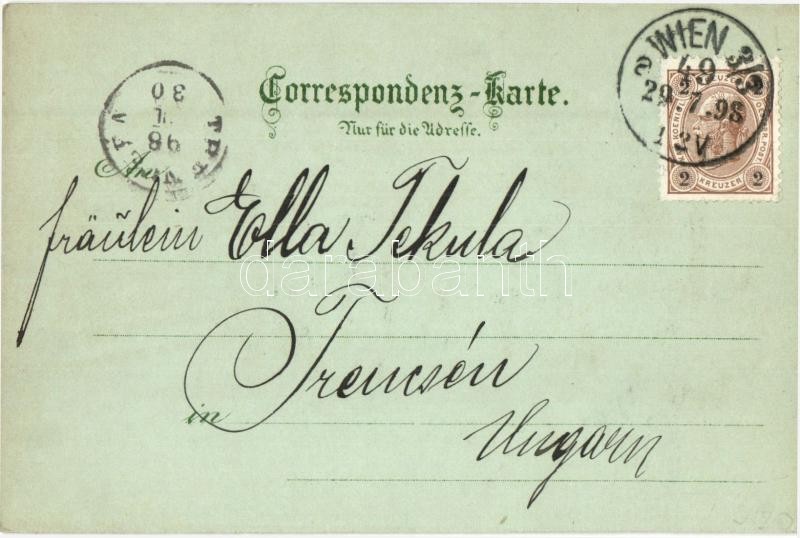 Correspondenz-Karte.
Nur für die Adresse.
WIEN 3/3
49
29.7.98
1.2V
30
98
KREUZER
2 2
An
fräulein Ella Tekula
in Trencsén
Ungarn
darabanth